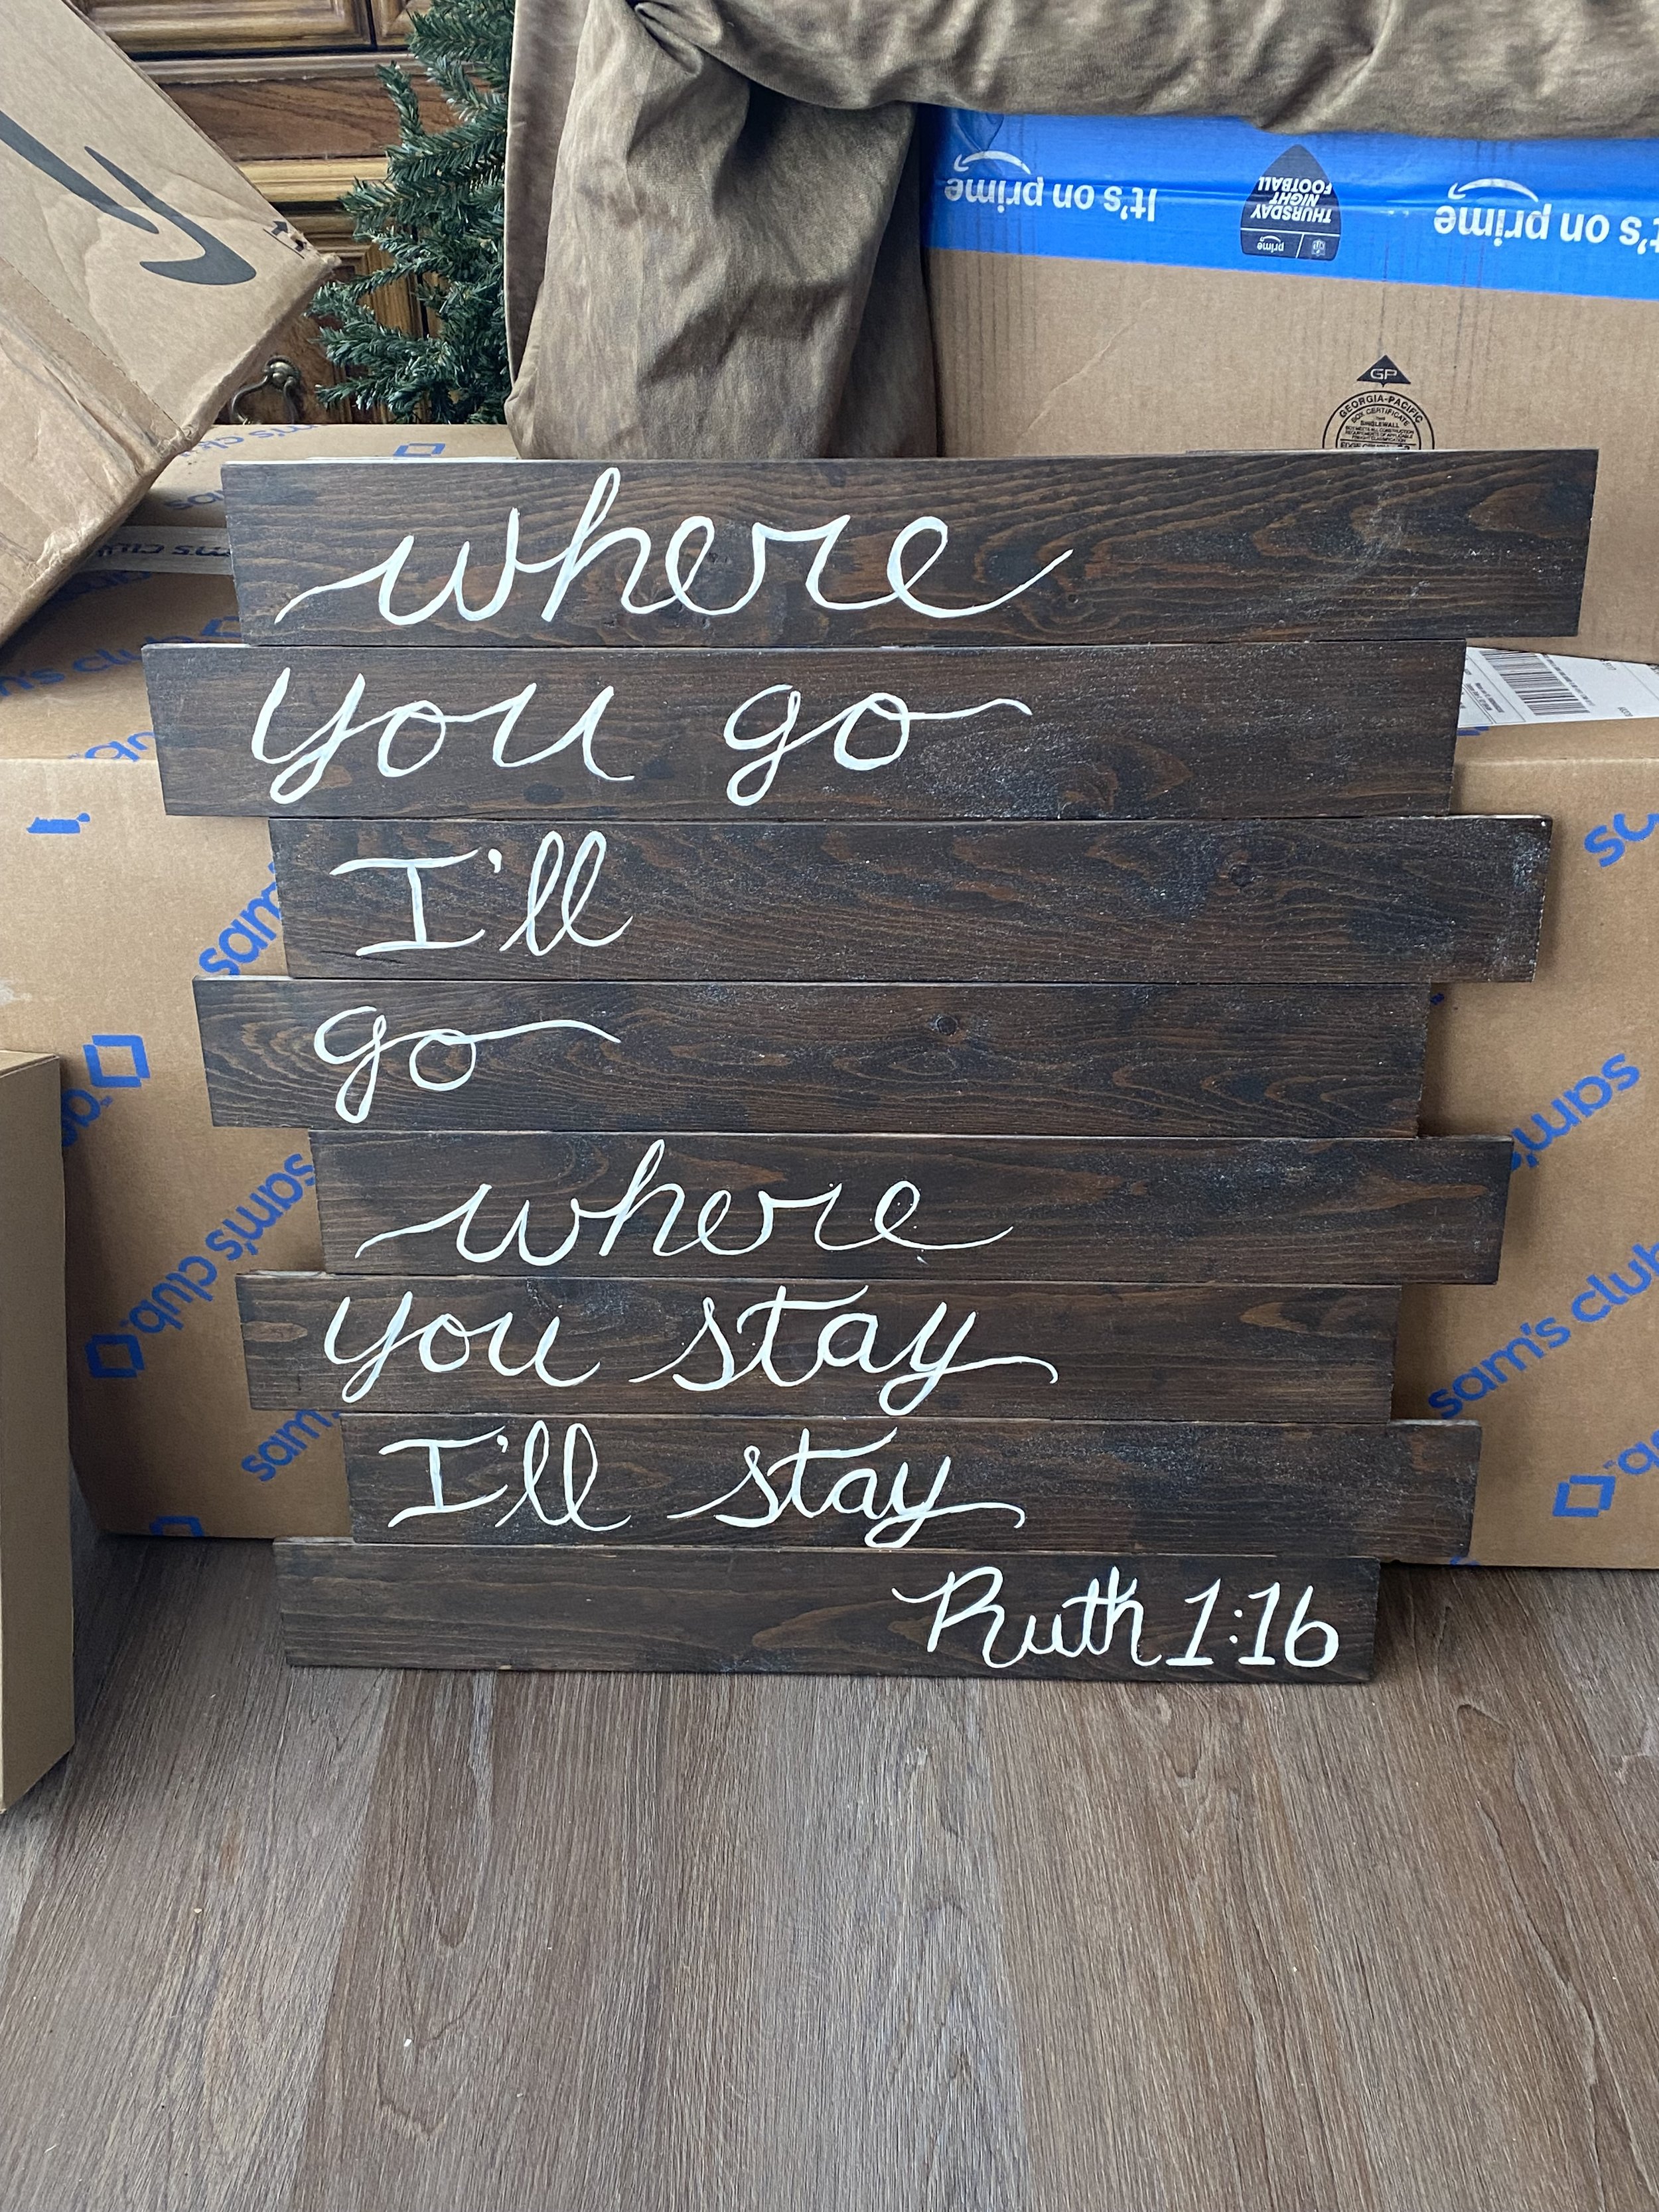 It's on prime
THURSDAY
NIGHT
FOOTBALL
prime
It's on prime
GP
GEORGIA-PACIFIC
BOX CERTIFICATE
SINGLEWALL
where
you go
I'll
go
where
you stay
I'll stay
Ruth 1:16
sam's club
sam's club
sam's club
sam's club